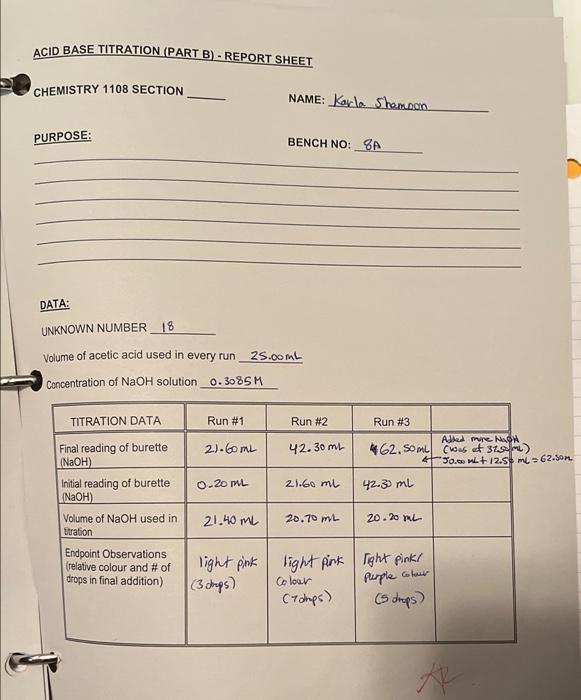 ACID BASE TITRATION (PART B) - REPORT SHEET
CHEMISTRY 1108 SECTION
NAME: Karla Shamoon
PURPOSE:
BENCH NO: 8A
DATA:
UNKNOWN NUMBER 18
Volume of acetic acid used in every run 25.00mL
Concentration of NaOH solution 0.3085M
TITRATION DATA Run #1 Run #2 Run #3
Final reading of burette (NaOH) 21.60mL 42.30mL 62.50mL
Added more NaOH
(was at 37.50mL)
50.00 mL + 12.50 mL = 62.50m
Initial reading of burette (NaOH) 0.20mL 21.60 mL 42.30 mL
Volume of NaOH used in titration 21.40 mL 20.70 mL 20.20 mL
Endpoint Observations (relative colour and # of drops in final addition)
light pink
(3 drops)
light pink
Colour
(7 drops)
light pink/
purple colour
(5 drops)